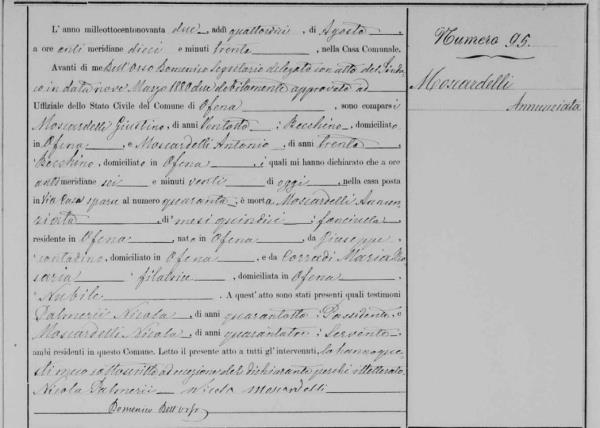 L'anno milleottocentonovanta due, addì quattordici, di Agosto
a ore anti meridiane dieci e minuti trenta, nella Casa Comunale.
Avanti di me Dell'Orso Domenico Segretario delegato con atto del Sinda-
co in data nove Marzo 188 debitamente approvato ad
Uffiziale dello Stato Civile del Comune di Ofena, sono comparsi
Moscardelli Giustino, di anni ventotto; Becchino, domiciliato
in Ofena, e Moscardelli Antonio, di anni trenta
Becchino, domiciliato in Ofena, i quali mi hanno dichiarato che a ore
anti meridiane sei e minuti venti di oggi, nella casa posta
in Via Casa sparsa al numero quaranta, è morta Moscardelli Annun-
ziata, di mesi quindici; fanciulla
residente in Ofena, nata in Ofena, da Giuseppe
contadino, domiciliato in Ofena, e da Corradi Maria Ro
saria filatrice, domiciliata in Ofena
Nubile. A quest'atto sono stati presenti quali testimoni
Palmerii Nicola, di anni quarantotto; Possidente, e
Moscardelli Nicola, di anni quarantatre; Servente
ambi residenti in questo Comune. Letto il presente atto a tutti gl'intervenuti, lo hanno que-
sti meco sottoscritto ad eccezione dei dichiaranti perchè illetterati
Nicola Palmerii Nicola Moscardelli
Domenico Dell'Orso
Numero 95.
Moscardelli
Annunciata